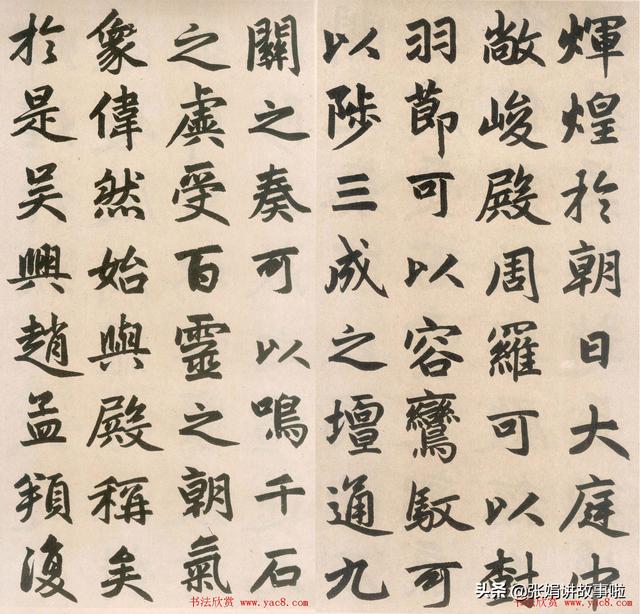 煇煌於朝日大庭中
敞峻殿周羅可以樹
羽節可以容鸞馭可
以陟三成之壇通九
關之奏可以鳴千石
之虡受百靈之朝氣
象偉然始與殿稱矣
於是吳興趙孟頫復
书法欣赏 www.yac8.com
书法欣赏 www.yac8.com
头条 @张娟讲故事啦